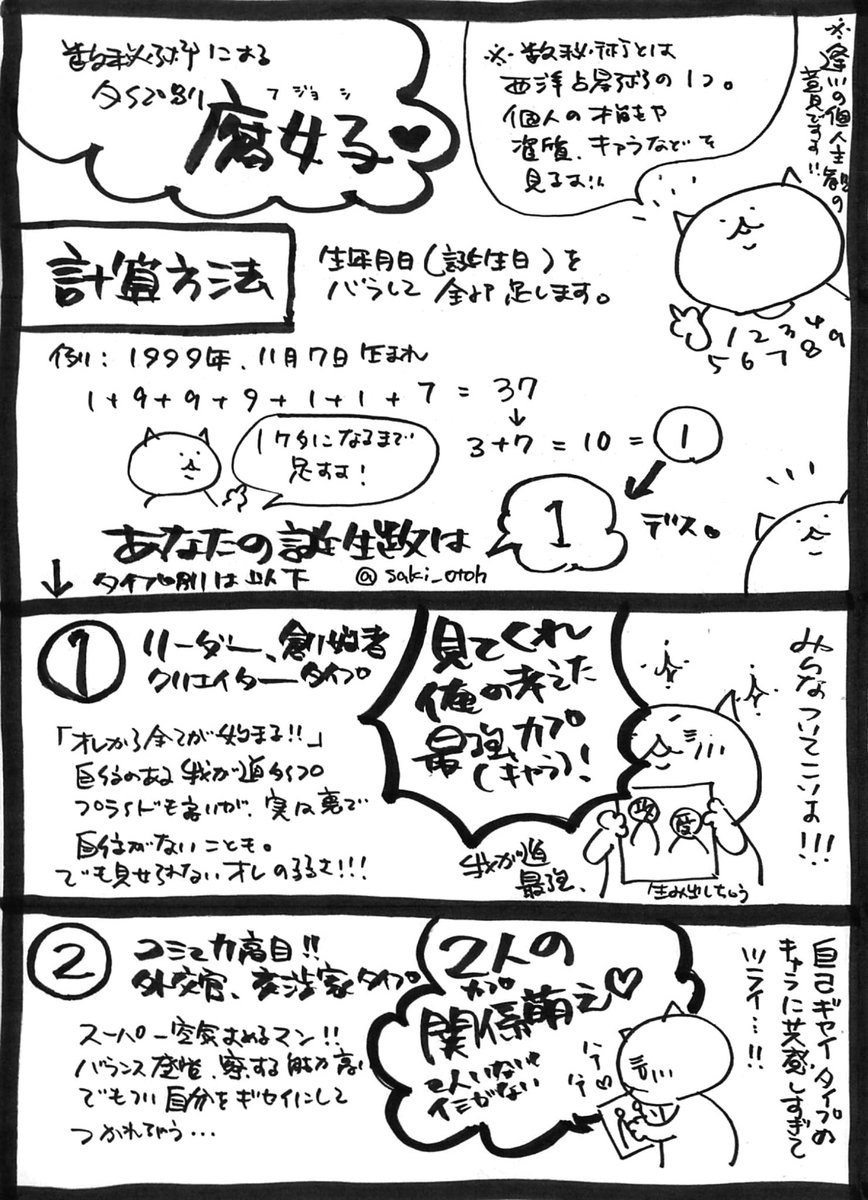 数秘術による
タイプ別
フジョシ
腐女子♥
※数秘術とは
西洋占星術の1つ。
個人の才能や
資質、キャラなどを
見るよ!!
※逢川の個人主観の
意見です!!
計算方法
生年月日(誕生日)を
バラして全部足します。
1 2 3 4
5 6 7 8 9
例: 1999年、11月7日生まれ
1+9+9+9+1+1+7 = 37
↓
3+7 = 10 = ①
1ケタになるまで
足すよ!
あなたの誕生数は
1
デス。
↓
タイプ別は以下
@saki_otoh
①
リーダー、創始者
クリエイタータイプ
「オレから全てが始まる!!」
自信のある我が道タイプ
プライドも高いが、実は裏で
自信がないことも。
でも見せられないオレの弱さ!!!
見てくれ
俺の考えた
最強カプ
(キャラ)!
我が道
最強、
攻
受
生み出しちゃう
みんなついてこいよ!!!
②
コミュ力高目!!
外交官、交渉家タイプ
スーパー空気よめるマン!!
バランス感覚、察する能力高い
でもつい自分をギセイにして
つかれちゃう…
2人の
カプ
関係萌え♡
2人いないと
イミがない
ハァ
ハァ♡
自己ギセイタイプの
キャラに共感しすぎて
ツライ…!!